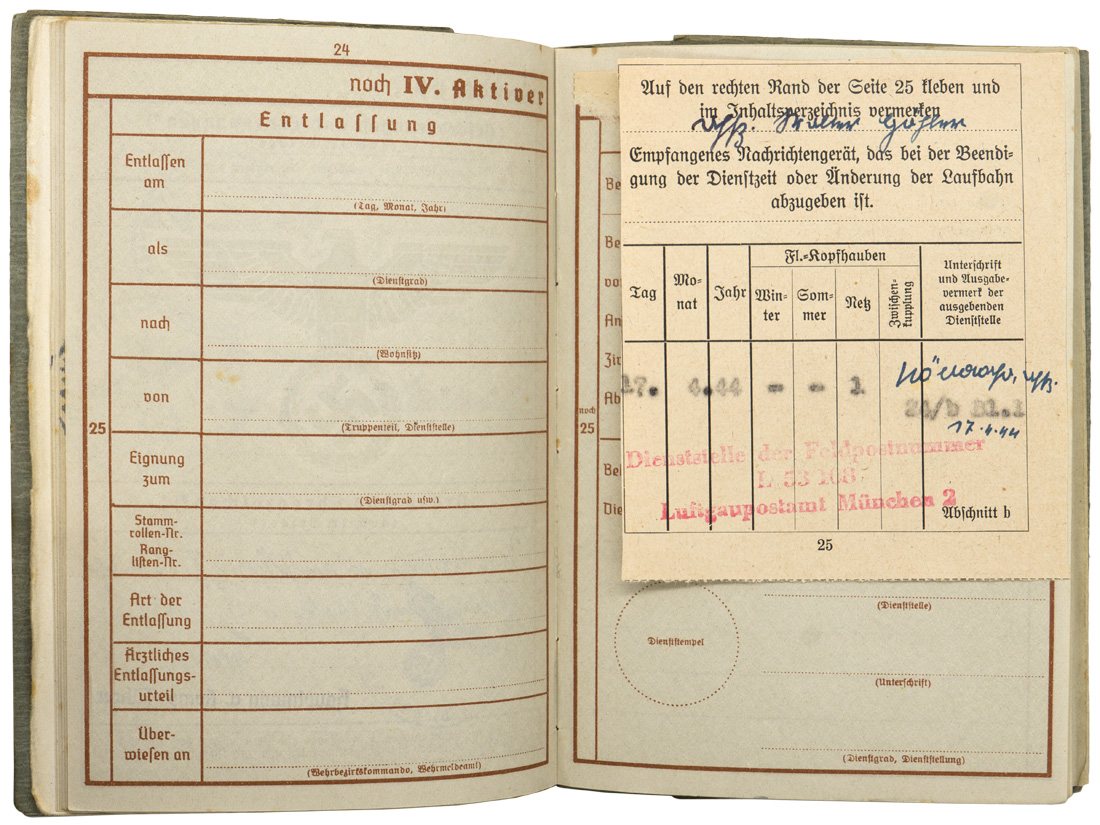 24
noch IV. Aktiver
Entlassung
Entlassen
am
(Tag, Monat, Jahr)
als
(Dienstgrad)
nach
(Wohnsitz)
von
(Truppenteil, Dienststelle)
25
Eignung
zum
(Dienstgrad usw.)
Stamm-
rollen-Nr.
Rang-
listen-Nr.
Art der
Entlassung
Ärztliches
Entlassungs-
urteil
Über-
wiesen an
(Wehrbezirkskommando, Wehrmeldeamt)
Auf den rechten Rand der Seite 25 kleben und
im Inhaltsverzeichnis vermerken
Uffz. Walter Göhler
Empfangenes Nachrichtengerät, das bei der Beendi-
gung der Dienstzeit oder Änderung der Laufbahn
abzugeben ist.
Tag
Mo-
nat
Jahr
Fl.-Kopfhauben
Win-
ter
Som-
mer
Netz
Zwischen-
kupplung
Unterschrift
und Ausgabe-
vermerk der
ausgebenden
Dienststelle
17. 4.44 - - 1
24/b Bl.1
17.4.44
Dienststelle der Feldpostnummer
L 53 168
Luftgaupostamt München 2
Abschnitt b
25
Be
Be
vo
An
Zir
Ab
noch
25
Be
Die
Dienststempel
(Dienststelle)
(Unterschrift)
(Dienstgrad, Dienststellung)